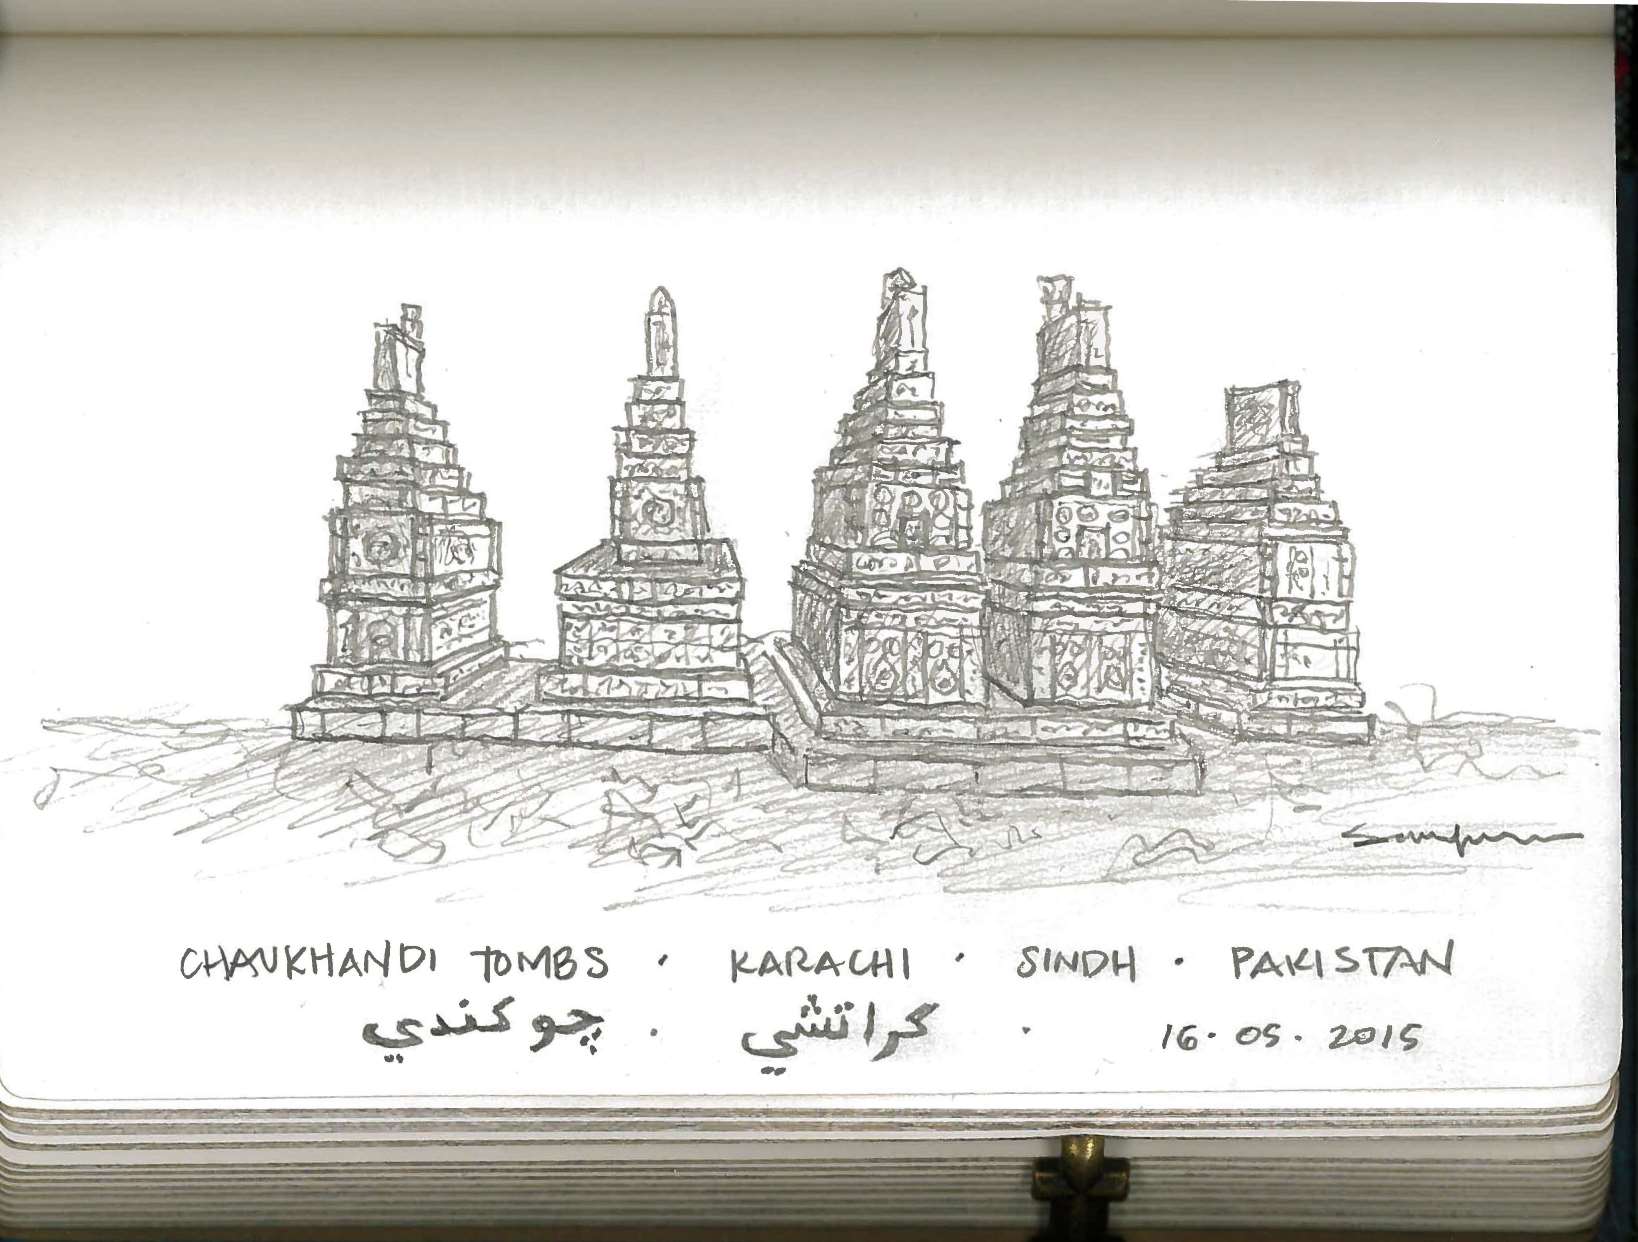 CHAUKHANDI TOMBS · KARACHI · SINDH · PAKISTAN
چوكندي · كراتشي · 16·05·2015